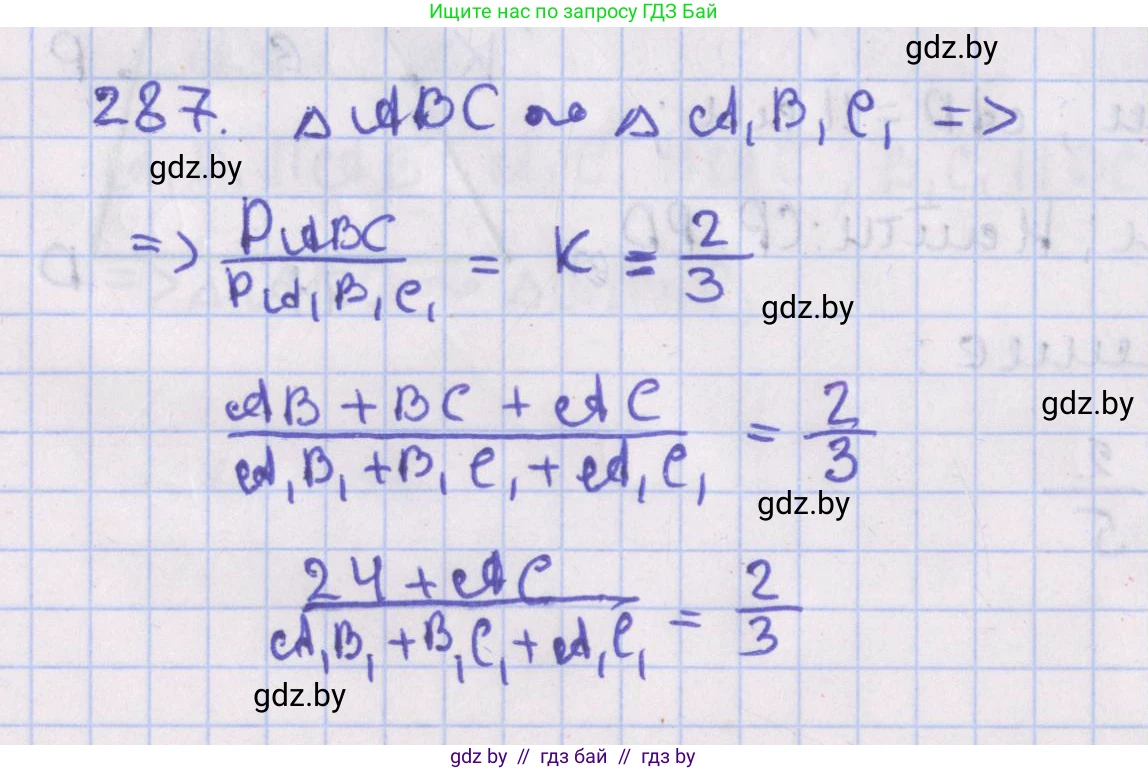 Ищите нас по запросу ГДЗ Бай
gdz.by
287. △ ABC ∾ △ A₁B₁C₁ =>
gdz.by
=> P ABC / P A₁B₁C₁ = K = 2/3
gdz.by
AB + BC + AC / A₁B₁ + B₁C₁ + A₁C₁ = 2/3
gdz.by
gdz.by
24 + AC / A₁B₁ + B₁C₁ + A₁C₁ = 2/3
gdz.by
gdz by // гдз бай // gdz by